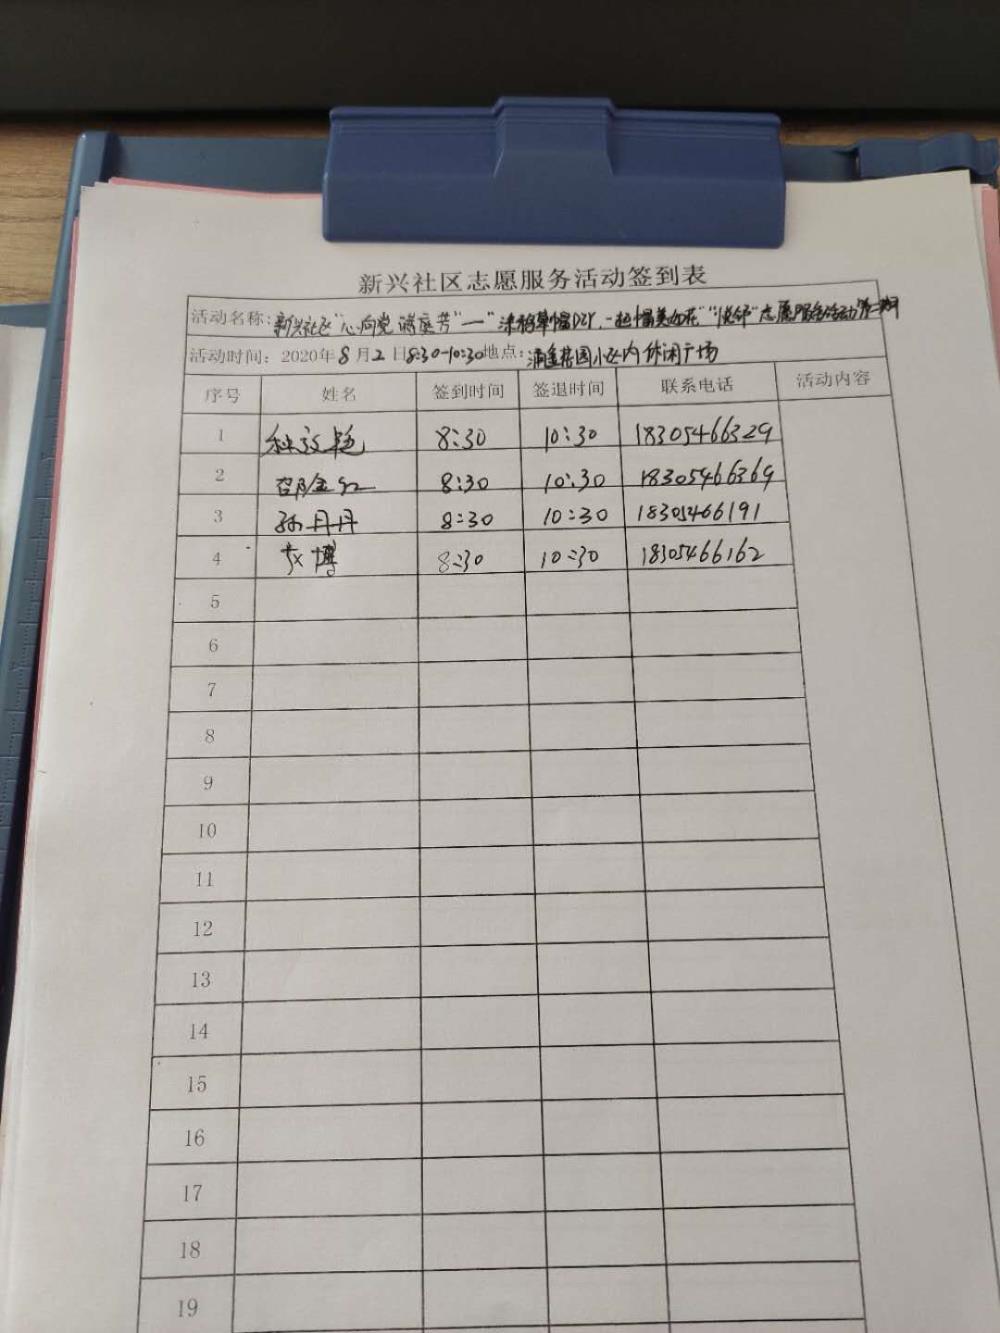 新兴社区志愿服务活动签到表
活动名称:新兴社区"心向党 满庭芳"一"涂鸦草帽DIY,一起帽美如花""悦邻"志愿服务活动第二期
活动时间: 2020年8月2日8:30-10:30地点:浦金花园小区内休闲广场
序号 姓名 签到时间 签退时间 联系电话 活动内容
1 8:30 10:30 18305466329
2 邵金红 8:30 10:30 18305466369
3 孙丹丹 8:30 10:30 18305466191
4 博 8:30 10:30 18305466162
5
6
7
8
9
10
11
12
13
14
15
16
17
18
19